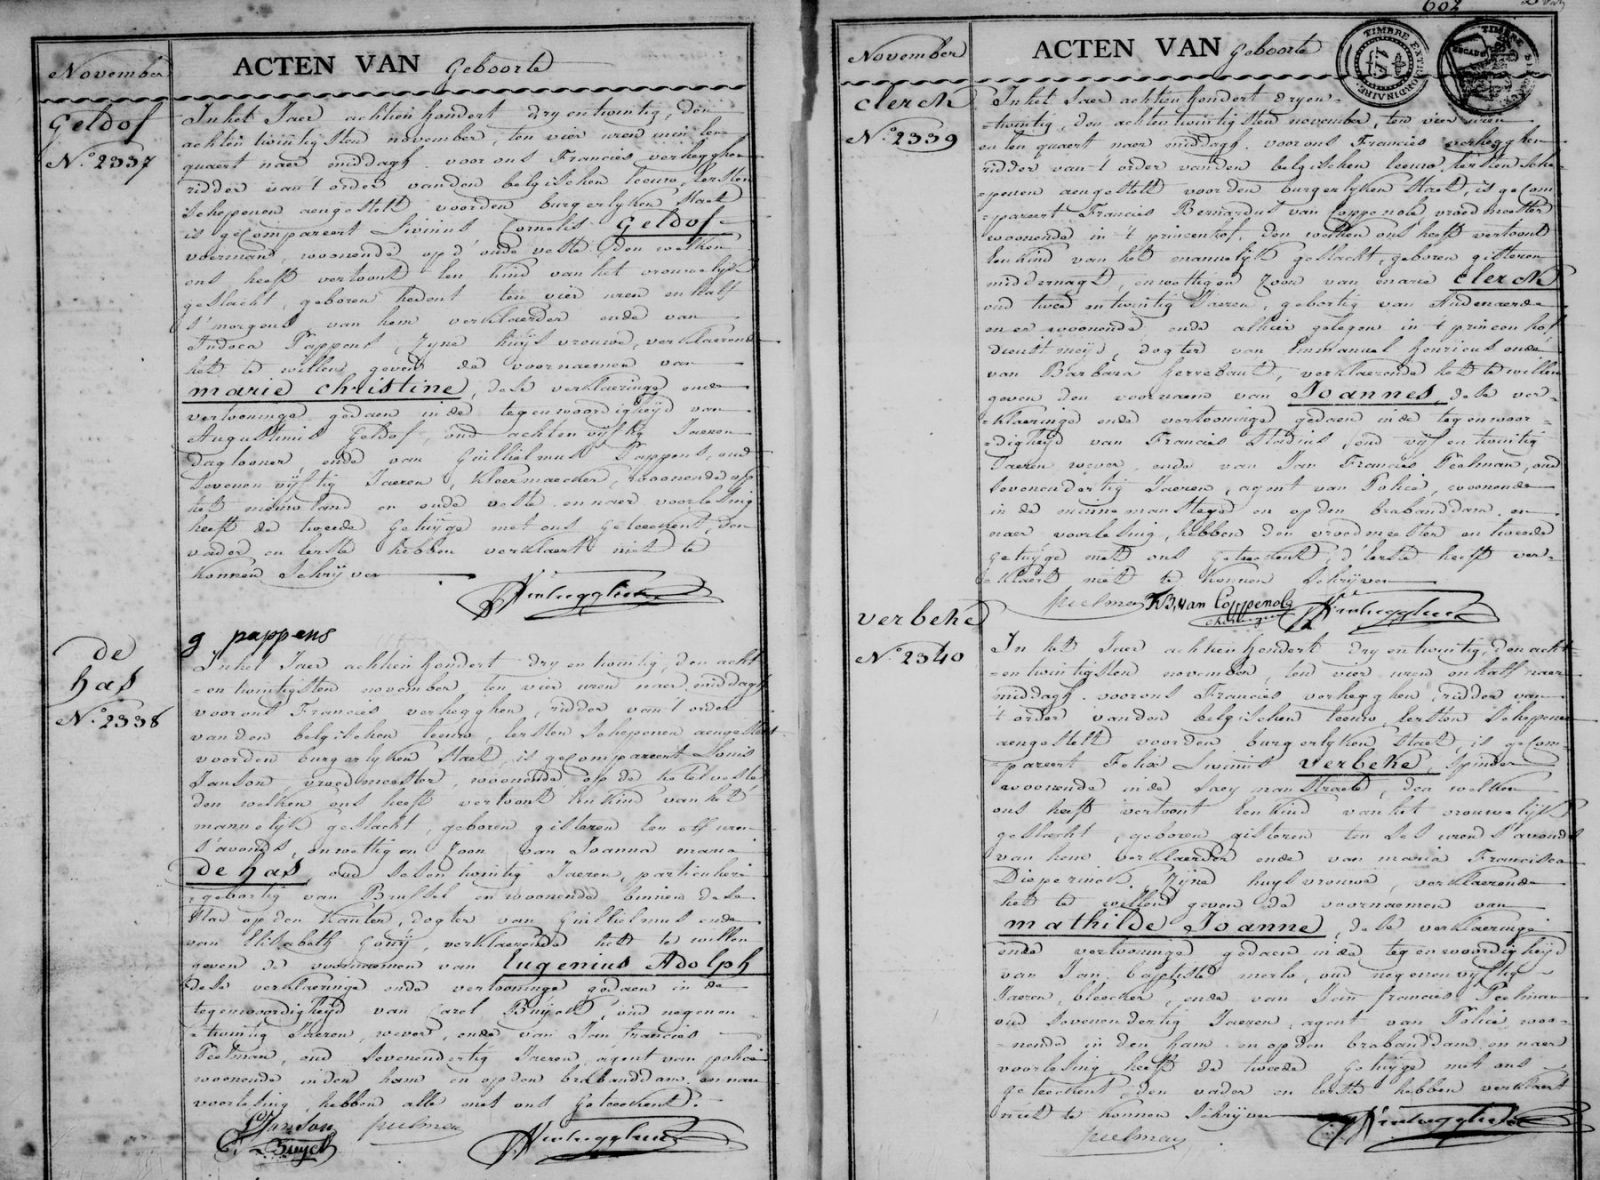 November
ACTEN VAN Geboorte
Geldof
N.º 2337
In het Jaer achtien hondert dry en twintig, den
achtentwintigsten november, ten vier uren min een
quaert naer middagh. voor ons Francies verhegghen
ridder van 't order van den belgischen leeuw, eersten
schepenen aengestelt voor den burgerlyken staet
is gecompareert Livinus Cornelis Geldof
voerman, woonende op d'oude veste, den welken
ons heeft vertoont een kind van het vrouwelijk
geslacht, geboren heden ten vier uren en half
s'morgens van hem verklaerder ende van
Judoca Pappens, zyne huysvrouwe, verklaerende
het te willen geven de voornaemen van
marie christine, dese verklaeringe ende
vertooninge gedaen in de tegenwoordigheyd van
Augustinus Geldof, oud achtenvyftig Jaeren
daglooner ende van Guillielmus Pappens, oud
sevenenvyftig Jaeren, kleermaecker, woonende op
het nieuwland en oude veste en naer voorlesing
heeft de tweede getuyge met ons geteekent, den
vader en eerste hebben verklaert niet te
konnen schryven
g pappens
de
has
N.º 2338
In het Jaer achtien hondert dry en twintig, den acht
=entwintigsten november, ten vier uren naer middagh
voor ons Francies verhegghen, ridder van 't order
van den belgischen leeuw, eersten schepenen aengestelt
voor den burgerlyken staet, is gecompareert Louis
Janson vroedmeester, woonende op de ketelveste
den welken ons heeft vertoont een kind van het
mannelijk geslacht, geboren gisteren ten elf uren
s'avonds, onwettigen zoon van Joanna maria
de has, oud sesentwintig Jaeren, particuliere
geboortig van Brussel en woonende binnen dese
stad op den kauter, dogter van Guillielmus ende
van Elisabeth, verklaerende het te willen
geven de voornaemen van Eugenius Adolph
dese verklaeringe ende vertooninge gedaen in de
tegenwoordigheyd van Carel Buyck, oud negenen
=twintig Jaeren, wever, ende van Jan francies
Peelman, oud sevenendertig Jaeren, agent van police
woonende in den ham en op den brabanddam en naer
voorlesing, hebben alle met ons geteekent.
Janson peelman
C. Buyck
602
November
ACTEN VAN Geboorte
TIMBRE EXTRAORDINAIRE
TIMBRE
clerck
N.º 2339
In het Jaer achtien hondert dryen=
=twintig, den achtentwintigsten november, ten vier uren
en een quaert naer middagh. voor ons Francies verhegghen
ridder van 't order van den belgischen leeuw, eersten sche=
=penen aengestelt voor den burgerlyken staet, is gecom=
=pareert Francies Bernardus van Coppenole vroedmeester
woonende in 't princenhof, den welken ons heeft vertoont
een kind van het mannelijk geslacht, geboren gisteren
middernagt, onwettigen zoon van marie clerck
oud twee en twintig Jaeren, geboortig van Audenaerde
en er woonende ende alhier gelogen in 't princenhof
dienstmeyd, dogter van Emmanuel ende
van Barbara, verklaerende het te willen
geven den voornaem van Joannes, dese ver=
=klaeringe ende vertooninge gedaen in de tegenwoor=
=digheyd van Francies, oud vyf en twintig
Jaeren wever, ende van Jan Francies Peelman, oud
sevenendertig Jaeren, agent van Police, woonende
in de en op den brabanddam, en
naer voorlesing, hebben den vroedmeester en tweede
getuyge met ons geteekent, d'eerste heeft ver=
=klaert niet te konnen schryven
peelman F.B. van Coppenole
verbeke
N.º 2340
In het Jaer achtien hondert dry en twintig, den acht=
=entwintigsten november, ten vier uren en half naer
middagh. voor ons Francies verhegghen, ridder van
't order van den belgischen leeuw, eersten schepenen
aengestelt voor den burgerlyken staet, is gecom=
=pareert Felix Livinus verbeke, spinder
woonende in de straete, den welken
ons heeft vertoont een kind van het vrouwelijk
geslacht, geboren gisteren ten ses uren s'avonds
van hem verklaerder ende van maria Francisca
zyne huysvrouwe, verklaerende
het te willen geven de voornaemen van
mathilde Joanne, dese verklaeringe
ende vertooninge gedaen in de tegenwoordigheyd
van Jan baptiste, oud negenenvyftig
Jaeren, bleecker, ende van Jan francies Peelman
oud sevenendertig Jaeren, agent van Police, woo=
=nende in den ham en op den brabanddam, en naer
voorlesing heeft de tweede getuyge met ons
geteekent, den vader en eerste hebben verklaert
niet te konnen schryven
peelman